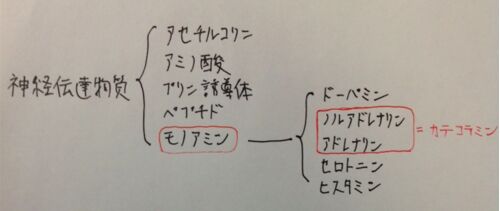 神経伝達物質
アセチルコリン
アミノ酸
プリン誘導体
ペプチド
モノアミン
ドーパミン
ノルアドレナリン
アドレナリン
= カテコラミン
セロトニン
ヒスタミン